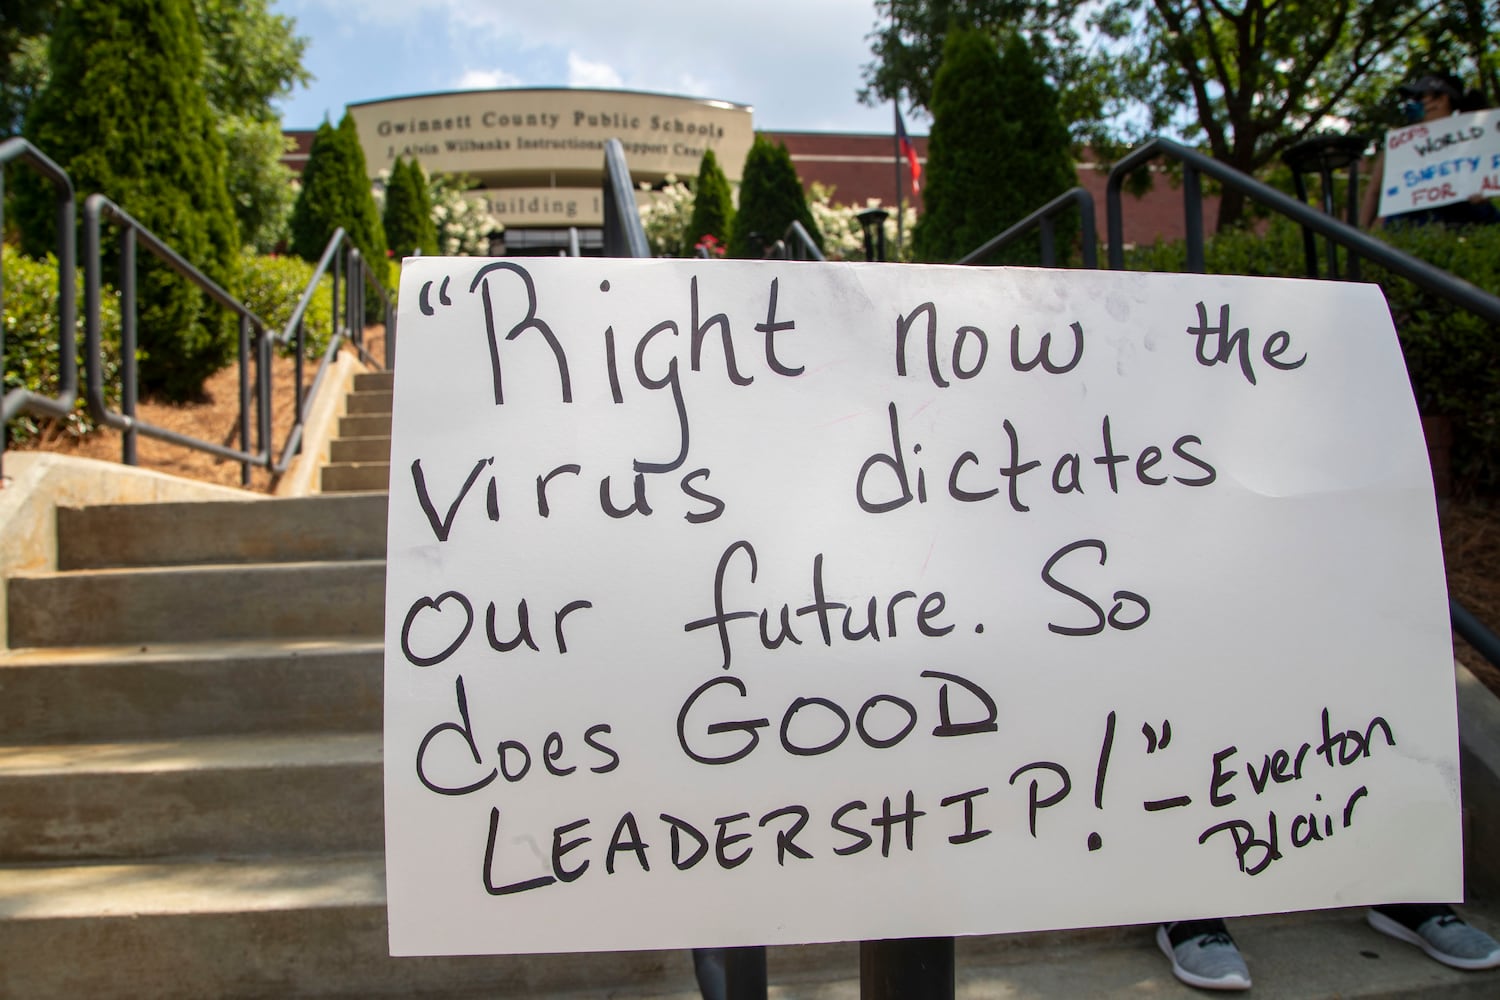 Gwinnett County Public Schools
J. Alvin Wilbanks Instructional Support Center
Building 1
GCPS
WORLD
- SAFETY
FOR
"Right now the
virus dictates
our future. So
does GOOD
LEADERSHIP!" - Everton
Blair